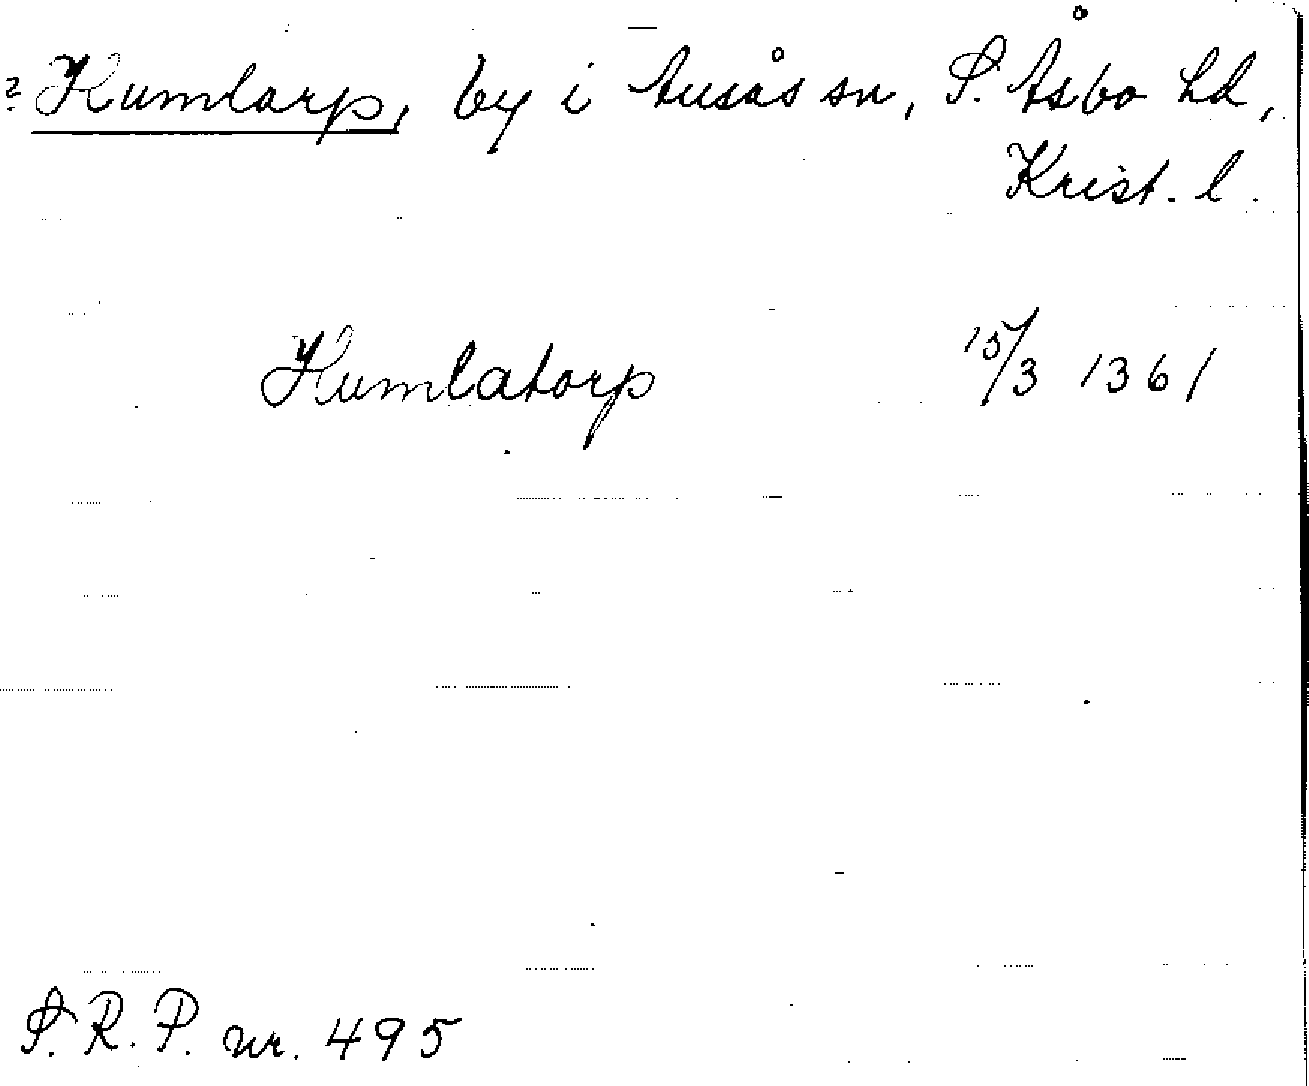 ? Humlarp, by i Ausås sn, S. Åsbo hd,
Krist. l.
Humlatorp 15/3 1361
S.R.P. nr. 495